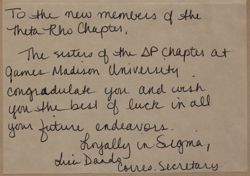 To the new members of the
Theta Rho Chapter,
The sisters of the ΔΡ Chapter at
James Madison University
congradulate you and wish
you the best of luck in all
your future endeavors.
Loyally in Sigma,
Corres. Secretary